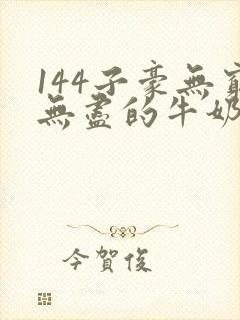 144子豪無窮
無盡的牛奶
今賀俊